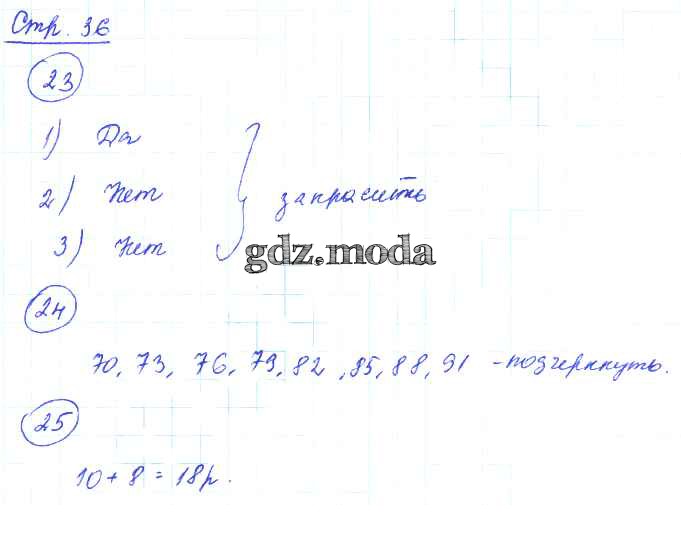 Стр. 36
23
1) Да
2) Нет
3) Нет
запрасить
gdz.moda
24
70, 73, 76, 79, 82, 85, 88, 91 - подчеркнуть.
25
10 + 8 = 18р.